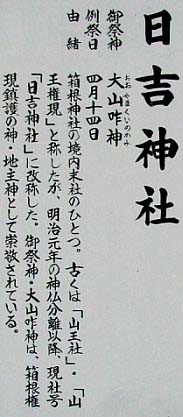 日吉神社
御祭神 大山咋神
おおやまくいのかみ
例祭日 四月十四日
由緒
箱根神社の境内末社のひとつ。古くは「山王社」・「山
王権現」と称したが、明治元年の神仏分離以降、現社号
「日吉神社」に改称した。御祭神・大山咋神は、箱根権
現鎮護の神・地主神として崇敬されている。